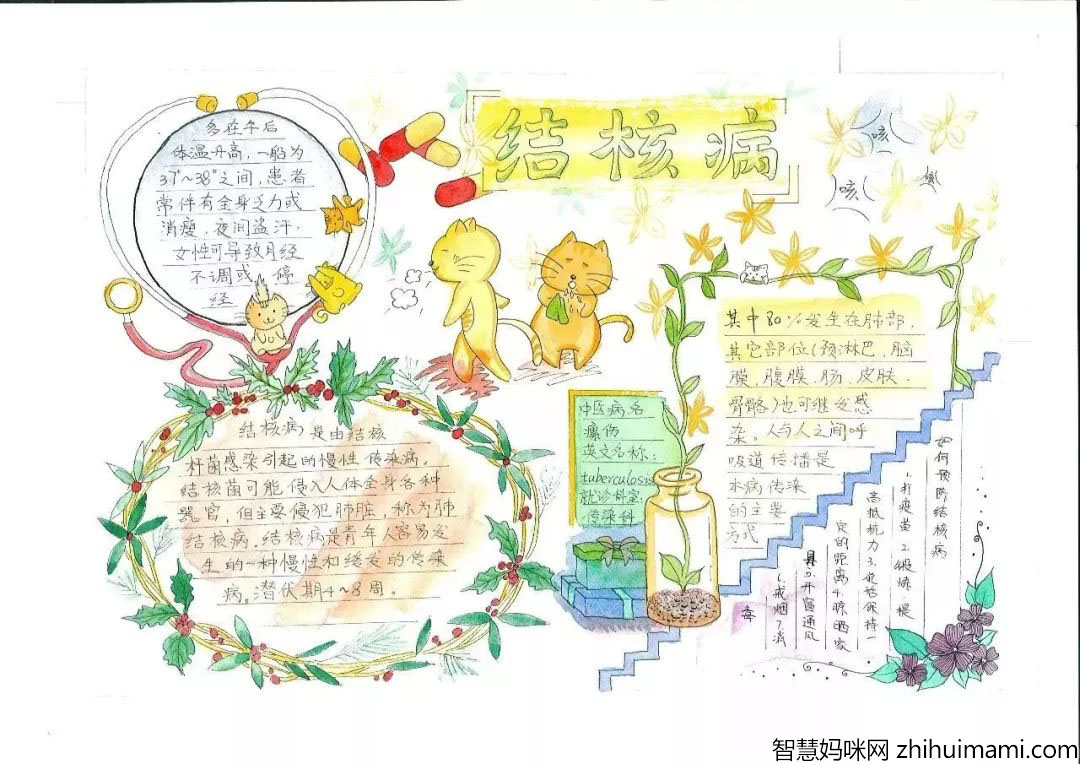 结核病
咳
咳
多在午后
体温升高,一般为
37°~38°之间,患者
常伴有全身乏力或
消瘦,夜间盗汗,
女性可导致月经
不调或 停
经
结核病是由结核
杆菌感染引起的慢性传染病。
结核菌可能侵入人体全身各种
器官,但主要侵犯肺脏,称为肺
结核病,结核病是青年人容易发
生的一种慢性和缓发的传染
病。潜伏期4~8周。
中医病名
瘰伤
英文名称:
tuberculosis
就诊科室:
传染科
其中80%发生在肺部,
其它部位(颈淋巴、脑
膜、腹膜、肠、皮肤、
骨骼)也可继发感
染。人与人之间呼
吸道传播是
本病传染
的主要
方式
如何预防结核病
1.打疫苗 2.锻炼 提
高抵抗力3.处结保持一
定的距离4.晾晒家
具5.开窗通风
6.戒烟7.消
毒
智慧妈咪网 zhihuimami.com